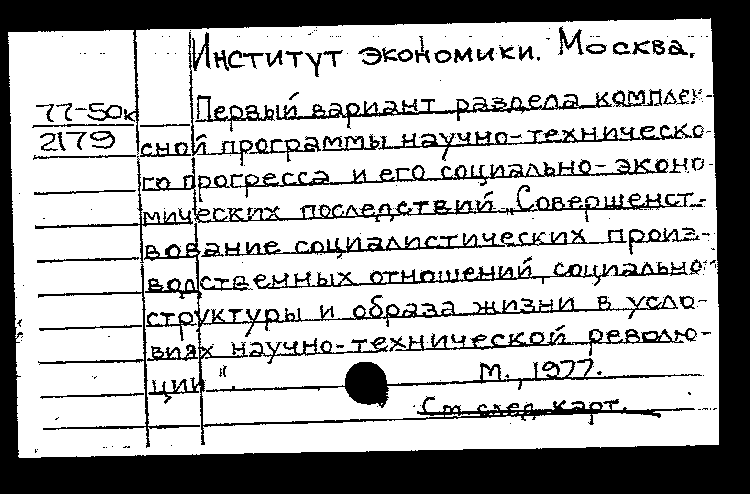 Институт экономики. Москва.
77-50к Первый вариант раздела комплек-
2179 сной программы научно-техническо
го прогресса и его социально-эконо-
мических последствий „Совершенст-
вование социалистических произ-
водственных отношений, социально
структуры и образа жизни в усло-
виях научно-технической револю-
ции". М., 1977.
См след. карт.